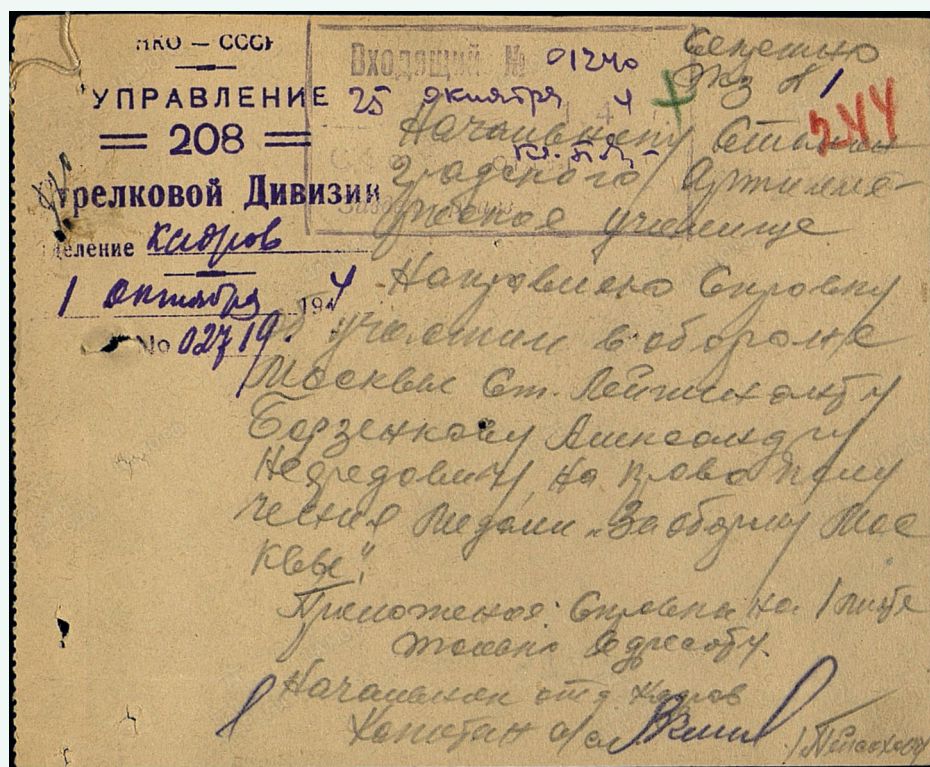 НКО — СССР
УПРАВЛЕНИЕ
208
Стрелковой Дивизии
Отделение Кадров
1 октября 1944
No 02719.
Входящий № 01240
25 октября 4
Секретно
Экз № 1
244
Начальнику Сталин
градского Артилле-
рийское училище
Направляю Справку
об участии в обороне
Москвы Ст. Лейтенанту
Борзенкову Александру
на право полу
чения медали „За оборону Мос
квы".
Приложение: Справка на 1 листе
только адресату.
Начальник отд. Кадров
Капитан а/с